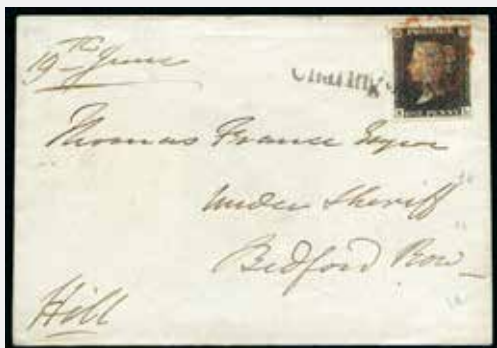 19th June
Charing
POSTAGE
ONE PENNY
Thomas France Esqre
Under Sheriff
Bedford Row
Hill